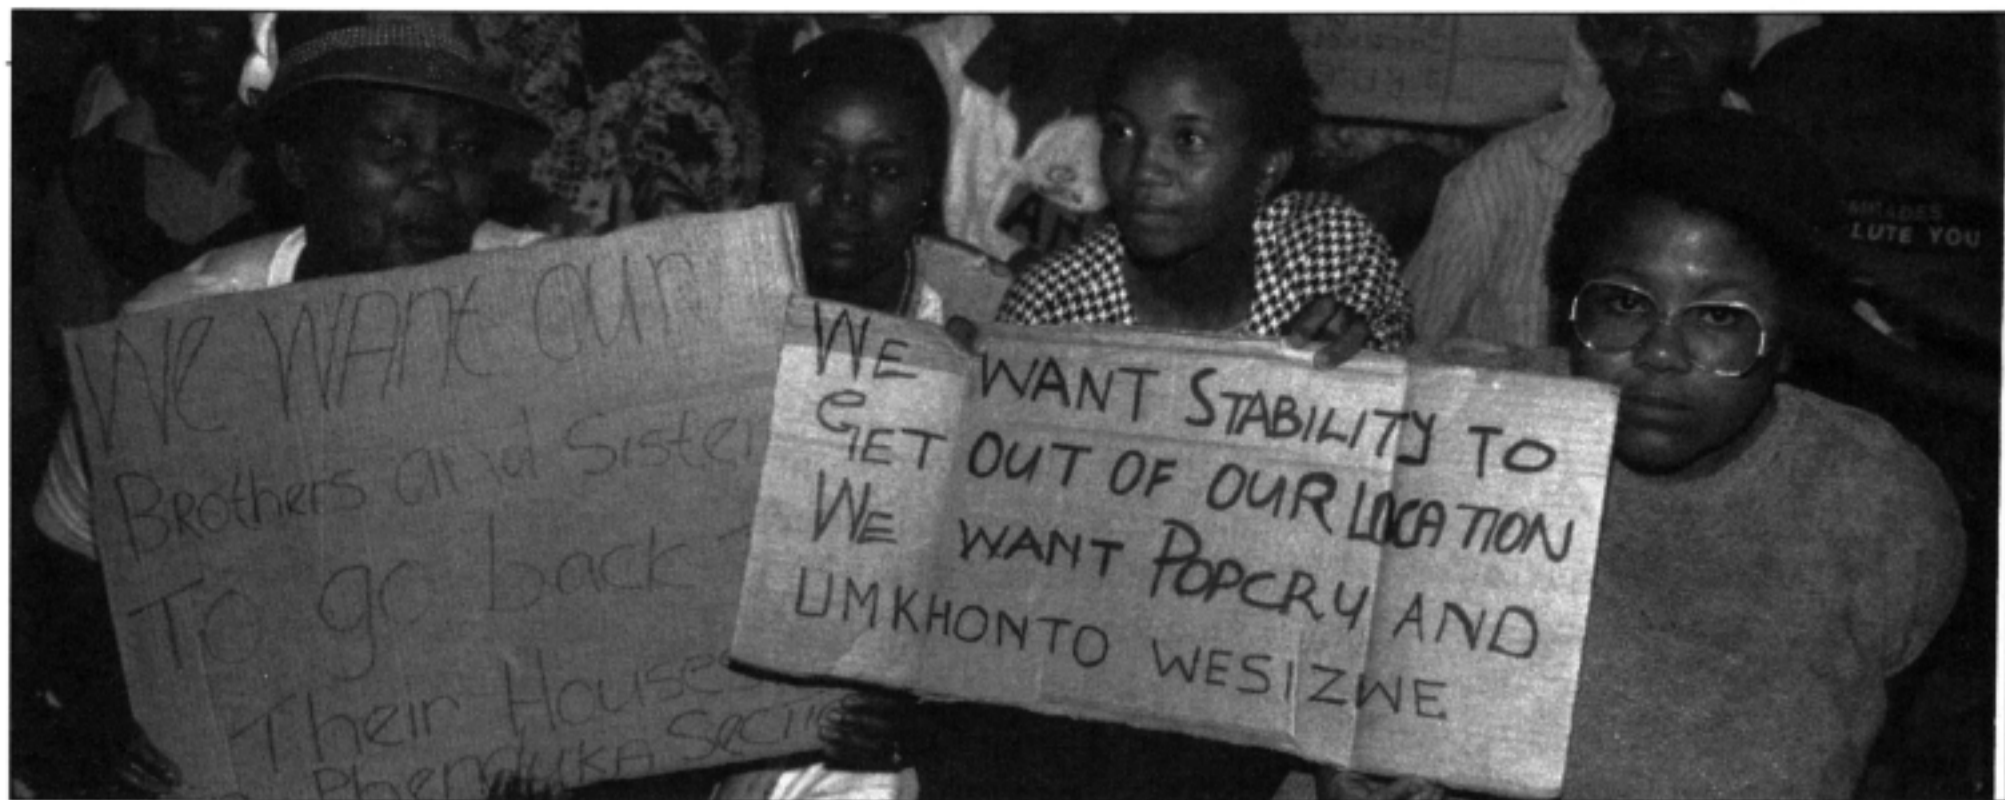 We WANt our
Brothers and Sister
To go back
Their Houses
PhendukA Sectio
WE WANT STABILITY TO
GET OUT OF OUR LOCATION
WE WANT POPCRY AND
UMKHONTO WESIZWE
LUTE YOU